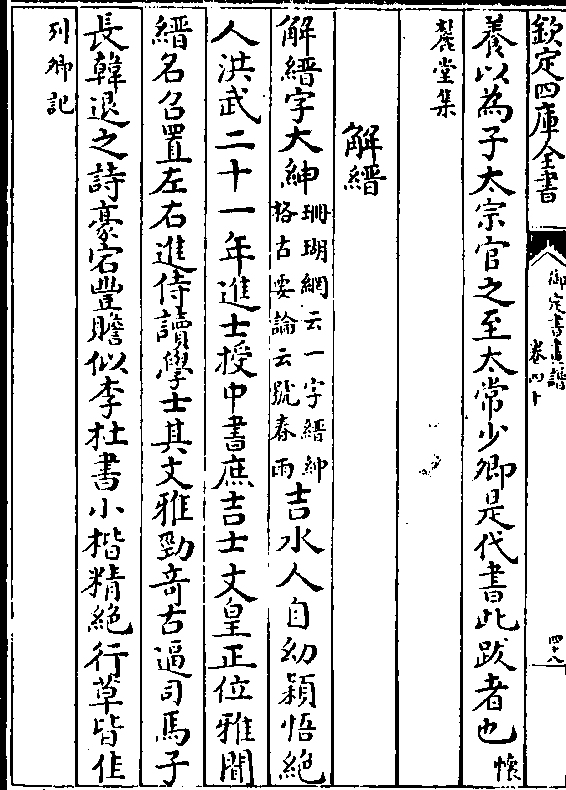 欽定四庫全書
御定書畫譜
卷四十
四十八
養以為子太宗官之至太常少卿是代書此跋者也懷
麓堂集
解縉
解縉字大紳珊瑚網云一字縉紳
格古要論云號春雨吉水人自幼穎悟絕
人洪武二十一年進士授中書庶吉士文皇正位雅聞
縉名召置左右進侍讀學士其文雅勁奇古逼司馬子
長韓退之詩豪宕豐贍似李杜書小楷精絕行草皆佳
列卿記